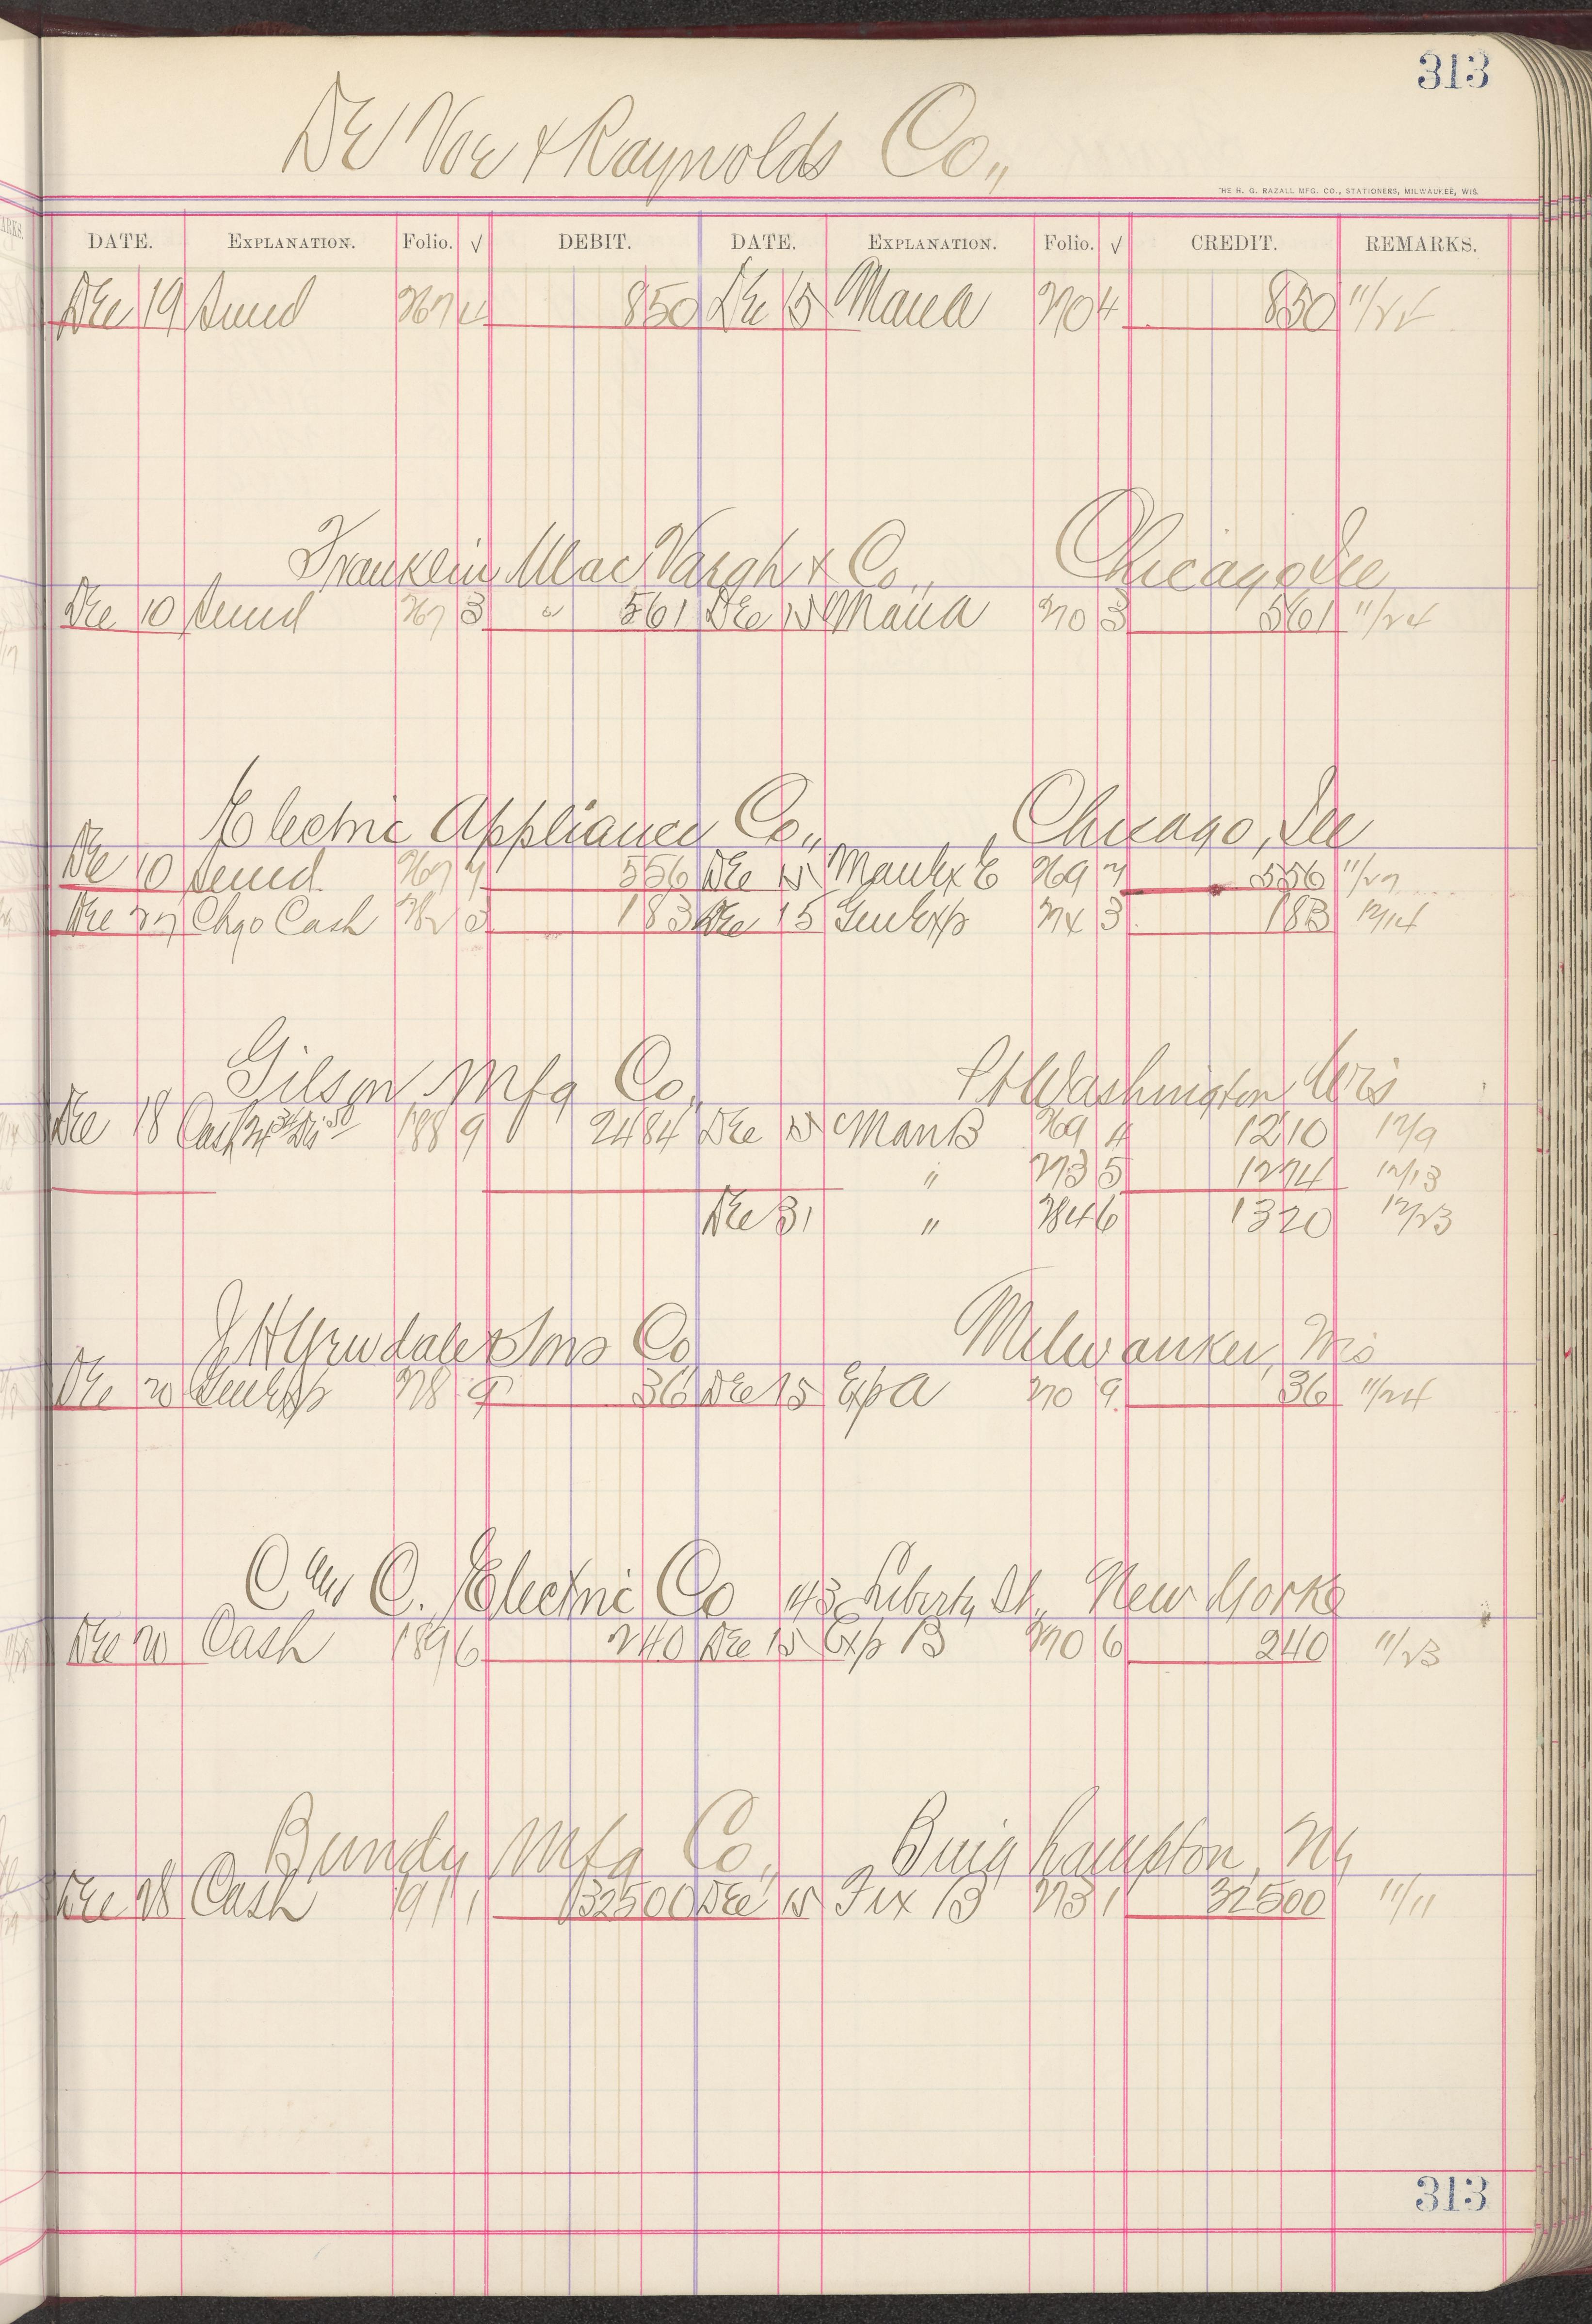 313
De Voe & Raynolds Co.,
THE H. G. RAZALL MFG. CO., STATIONERS, MILWAUKEE, WIS.
DATE. EXPLANATION. Folio. √ DEBIT. DATE. EXPLANATION. Folio. √ CREDIT. REMARKS.
Dec 19 Sund 267 4 850 Dec 15 Mana 270 4 850 11/25
Franklin MacVeagh & Co., Chicago Ill
Dec 10 Sund 267 3 " 561 Dec 15 Mana 270 3 561 11/24
Electric Appliance Co., Chicago, Ill
Dec 10 Sund 267 7 556 Dec 15 269 7 556 11/27
Dec 27 Chgo Cash 3 183 Dec 15 Genl Exp 274 3 183 12/14
Gilson Mfg Co, Pt Washington Wis
Dec 18 Cash 188 9 2484 Dec 15 Man B 269 4 1210 12/9
" 273 5 1274 12/13
Dec 31 " 284 6 1320 12/23
Sons Co Milwaukee, Wis
Dec 20 Genl Exp 278 9 36 Dec 15 Exp A 270 9 36 11/24
C & C. Electric Co 143 Liberty St., New York
Dec 20 Cash 189 6 240 Dec 15 Exp B 270 6 240 11/23
Bundy Mfg Co, Binghampton, NY
Dec 28 Cash 191 1 32500 Dec 15 Fix B 273 1 32500 11/11
313